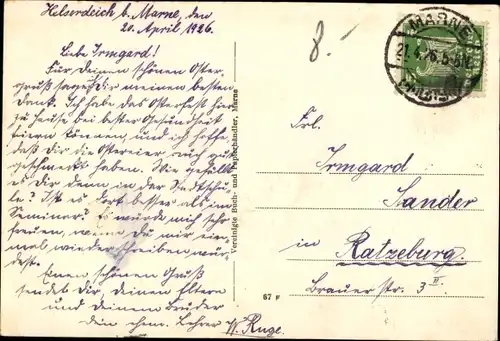 Helserdeich b. Marne, den
20. April 1926.
Liebe Irmgard!
Für Deinen schönen Oster-
gruß sage ich Dir meinen besten
Dank. Ich habe das Osterfest hier
zu Hause bei bester Gesundheit
feiern können und ich hoffe,
daß Dir die Ostereier auch gut
geschmeckt haben. Wie gefällt
es Dir denn in der Stadtschu-
le? Ist es dort besser als im
Seminar? Es würde mich sehr
freuen, wenn Du mir ein-
mal wieder schreiben wür-
dest.
Einen schönen Gruß
sendet Dir, Deinen Eltern
und Deinem Bruder
Dein ehem. Lehrer W. Ruge.
Vereinigte Buch- und Papierhändler, Marne
67 F
8.-
MARNE
21.4.26.5-6N.
Frl.
Irmgard
Sander
in Ratzeburg.
Brauerstr. 3 II.